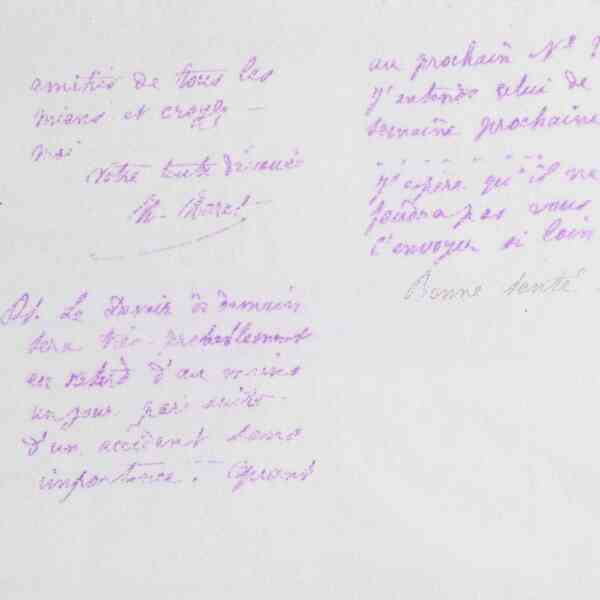 amitiés de tous les
miens et croyez-
moi
Votre toute dévouée
Ps. Le Devoir de demain
sera très probablement
en retard d'au moins
un jour par suite
d'un accident sans
importance. Quant
au prochain Nº
j'entends celui de
semaine prochaine
j'espère qu'il ne
faudra pas vous
l'envoyer si loin
Bonne santé